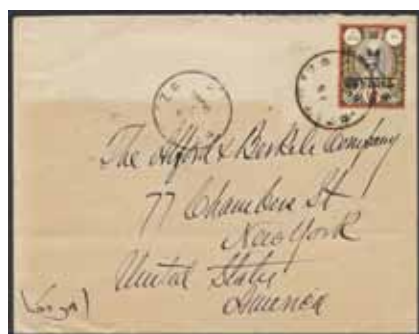 The Alford & Berkele Company
77 Chambers St
New York
United States
America